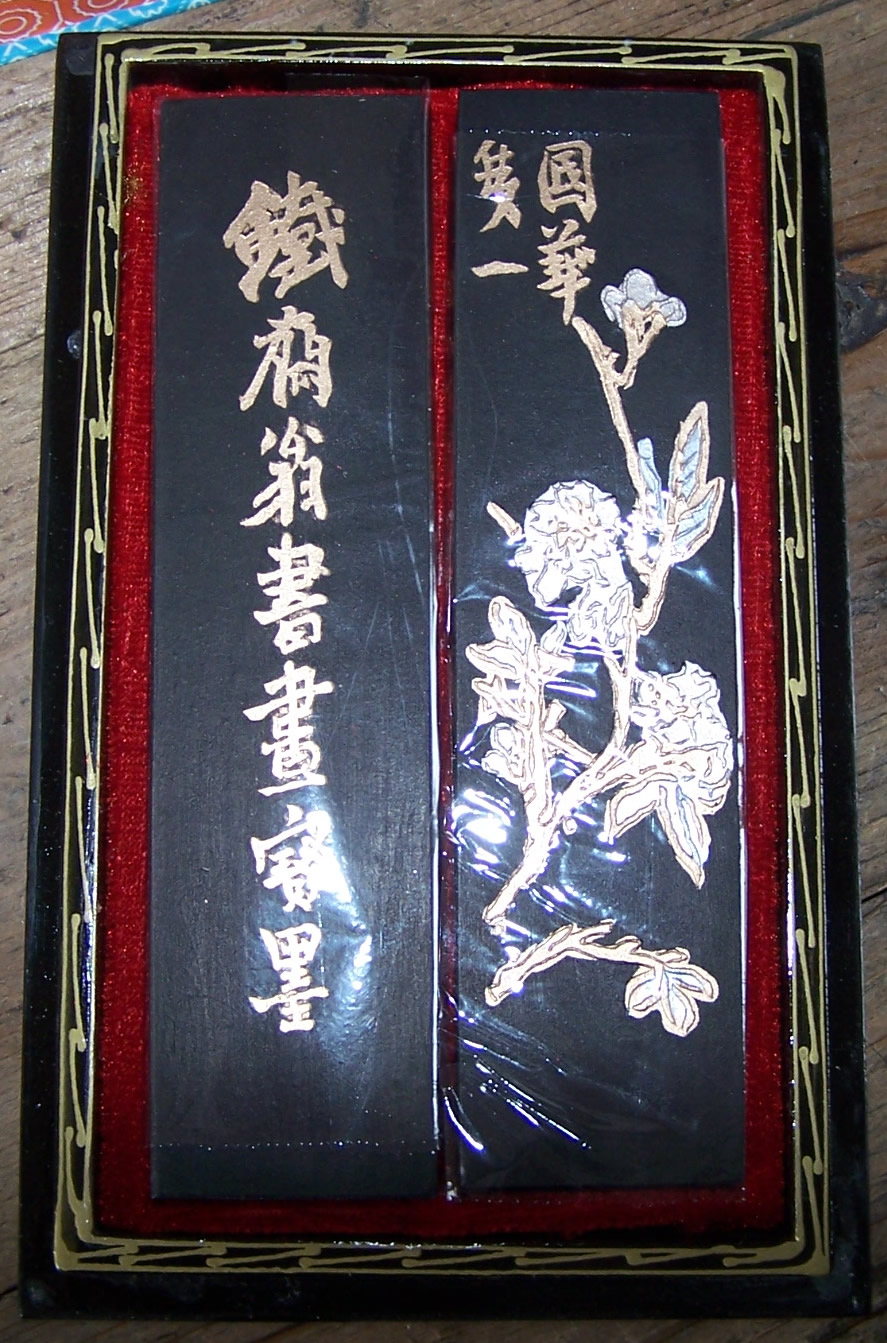 國華
第一
鐵齋翁書畫寶墨